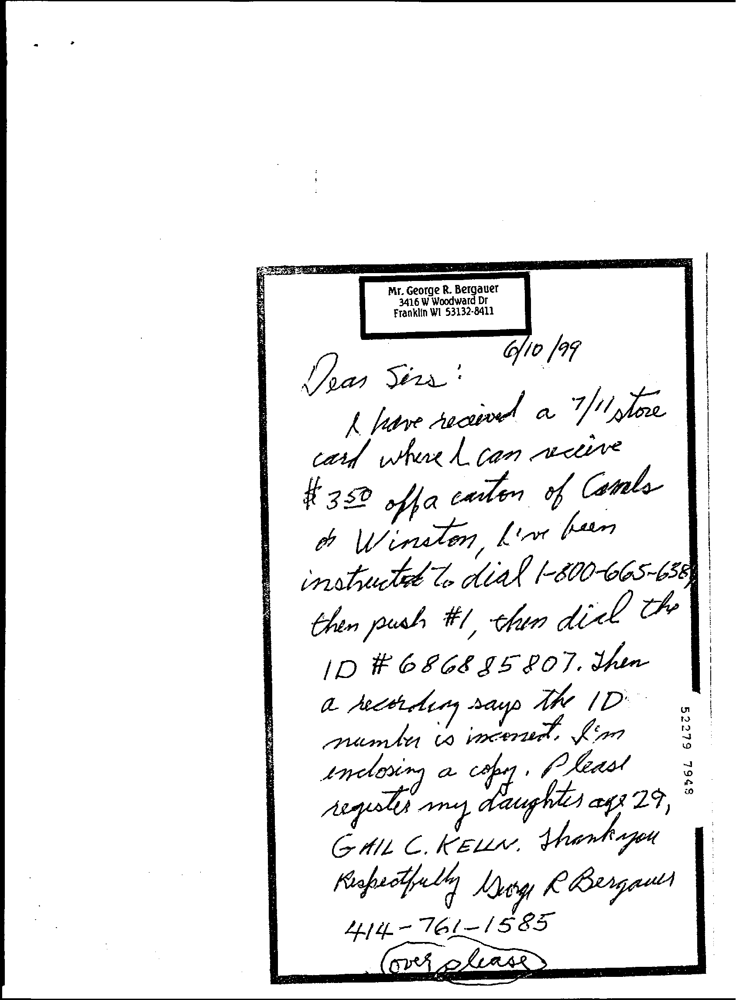 Mr. George R. Bergauer
3416 W Woodward Dr
Franklin WI 53132-8411
6/10/99
Dear Sirs:
I have received a 7/11 store
card where I can receive
$3.50 off a carton of Camels
or Winston, I've been
instructed to dial 1-800-665-638
then push #1, then dial the
ID #686885807. Then
a recording says the ID
number is incorrect. I'm
enclosing a copy. Please
register my daughter age 29,
GAIL C. KELLN. Thank you
Respectfully George R Bergauer
414-761-1585
(over please)
52279 7948